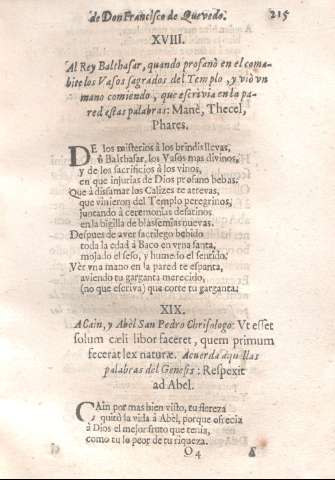 de Don Francisco de Quevedo. 215
XVIII.
Al Rey Balthasar, quando profanò en el com-
bite los Vasos sagrados del Templo, y viò vn
mano comiendo, que escrivia en la pa-
red estas palabras: Manè, Thecel,
Phares.
DE los misterios à los brindis llevas,
ò Balthasar, los Vasos mas divinos,
y de los sacrificios à los vinos,
en que injurias de Dios profano bebas.
Que à disfamar los Calizes te atrevas,
que vinieron del Templo peregrinos,
juntando à ceremonias desatinos
en la bigilla de blasfemias nuevas.
Despues de aver sacrilego bebido
toda la edad à Baco en vrna santa,
mojado el seso, y humedo el sentido.
Ver vna mano en la pared te espanta,
aviendo tu garganta merecido,
(no que escriva) que corte tu garganta.
XIX.
A Cain, y Abèl San Pedro Chrisologo: Vt esset
solum cæli libor faceret, quem primum
fecerat lex naturæ. Acuerda aqu llas
palabras del Genesis: Respexit
ad Abel.
CAin por mas bien visto, tu fiereza
quitò la vida à Abèl, porque ofrecia
à Dios el mejor fruto que tenia,
como tu lo peor de tu riqueza.
O 4